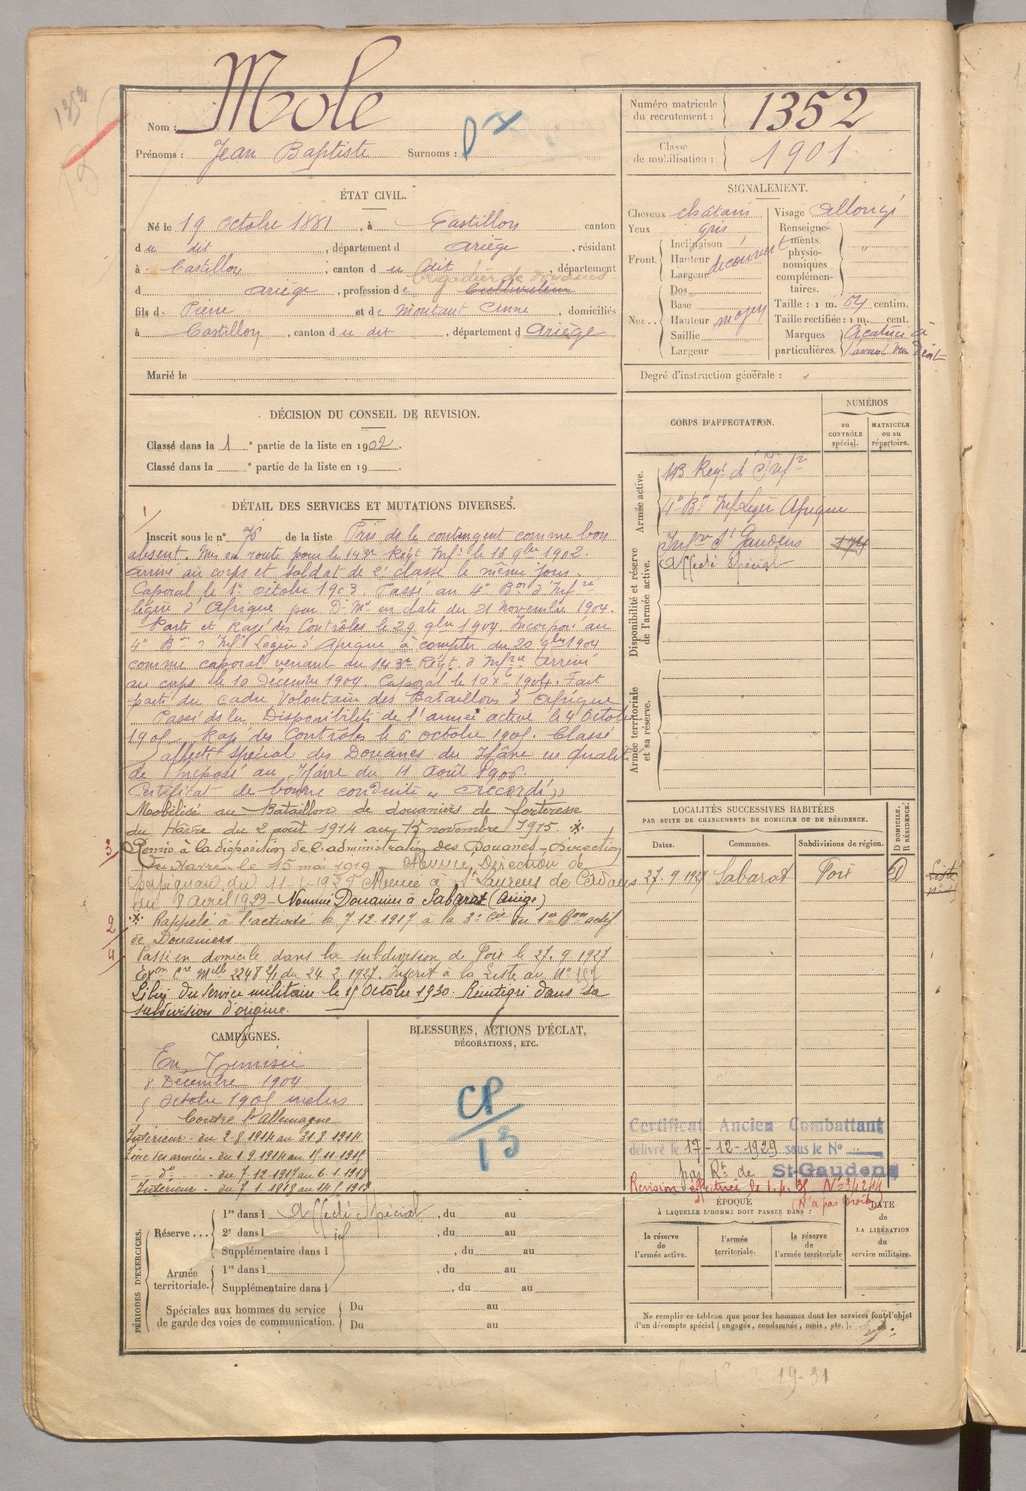 Nom : Mole
Prénoms : Jean Baptiste Surnoms :
Numéro matricule du recrutement : 1352
Classe de mobilisation : 1901
ÉTAT CIVIL.
Né le 19 octobre 1881, à Castillon canton
du dit, département d Ariège, résidant
à Castillon, canton du dit, département
d Ariège, profession de Cultivateur
brigadier de douanes
fils de Pierre et de Moutant domiciliés
à Castillon, canton du dit, département d Ariège
Marié le
SIGNALEMENT.
Cheveux châtain
Yeux gris
Front. Inclinaison
Hauteur découvert
Largeur
Nez.. Dos
Base
Hauteur moyen
Saillie
Largeur
Visage allongé
Renseignements physionomiques complémentaires.
Taille : 1 m. 64 centim.
Taille rectifiée : 1 m. cent.
Marques particulières. Cicatrice à
Degré d'instruction générale :
DÉCISION DU CONSEIL DE REVISION.
Classé dans la 1e partie de la liste en 1902.
Classé dans la e partie de la liste en 19
CORPS D'AFFECTATION.
NUMÉROS
au CONTRÔLE spécial.
MATRICULE ou au répertoire.
Armée active.
143 Regt d'Infie
4e Bn Inf Légère Afrique
Disponibilité et réserve de l'armée active.
Infie St Gaudens 174
Affecté Spécial
Armée territoriale et sa réserve.
DÉTAIL DES SERVICES ET MUTATIONS DIVERSES.
Inscrit sous le n° 73 de la liste Pris de le contingent comme bon
absent. Mis en route pour le 143e Regt Infie le 16 9bre 1902.
Arrivé au corps et soldat de 2e classe le même jour.
Caporal le 1er octobre 1903. Passé au 4e Bon d'Infie
légère d'Afrique par Dn Mle en date du 21 novembre 1904.
Parti et Rayé des Contrôles le 29 9bre 1904. Incorporé au
4e Bon d'Infie Légère d'Afrique à compter du 20 9bre 1904
comme caporal venant du 143e Regt d'Infie Arrivé
au corps le 10 décembre 1904. Caporal le 10 Xbre 1904. Fait
partie du cadre Volontaire des Bataillons d'Afrique
Passé ds la Disponibilité de l'armée active le 4 Octobre
1905. Rayé des Contrôles le 6 octobre 1905. Classé
affecté spécial des Douanes du Hâvre en qualité
de Préposé au Hâvre du 11 Août 1906.
Certificat de bonne conduite "accordé"
Mobilisé au Bataillon de douaniers de forteresse
du Hâvre du 2 août 1914 au 17 novembre 1915. *
Remis à la disposition de l'administration des Douanes - Direction
du Havre le 15 mai 1919
Perpignan Nommé à St Laurent de Cerdans
8 Avril 1922 - Nommé Douanier à Sabarat (Ariège)
* Rappelé à l'activité le 7.12.1917 à la 3e Cie du 1er Bon actif
de Douaniers
Passé en domicile dans la subdivision de Foix le 27.9.1927
Exon Cre Mlle 2248 2/1 du 24.2.1927. Inscrit à la Liste au N° 197
Libéré du service militaire le 15 Octobre 1930. Réintégré dans sa
subdivision d'origine.
LOCALITÉS SUCCESSIVES HABITÉES
PAR SUITE DE CHANGEMENTS DE DOMICILE OU DE RÉSIDENCE.
Dates. Communes. Subdivisions de région. D DOMICILE. R RÉSIDENCE.
27.9.1927 Sabarat Foix D
CAMPAGNES.
En Tunisie
8 Décembre 1904
5 octobre 1905 inclus
Contre l'Allemagne
Intérieur - du 2.8.1914 au 31.8.1914
Zone des armées - du 1.9.1914 au 17.11.1915
- d° - du 7.12.1917 au 6.1.1918
Intérieur - du 7.1.1918 au 14.5.1919
BLESSURES, ACTIONS D'ÉCLAT,
DÉCORATIONS, ETC.
CP
13
Certificat Ancien Combattant
délivré le 17-12-1929 sous le N°
par Rt de St-Gaudens
PÉRIODES D'EXERCICES.
Réserve... 1re dans l Affecté Spécial, du au
2e dans l, du au
Supplémentaire dans l, du au
Armée territoriale. 1re dans l, du au
Supplémentaire dans l, du au
Spéciales aux hommes du service de garde des voies de communication. Du au
Du au
ÉPOQUE
À LAQUELLE L'HOMME DOIT PASSER DANS :
la réserve de l'armée active.
l'armée territoriale.
la réserve de l'armée territoriale
DATE de LA LIBÉRATION du service militaire.
Ne remplir ce tableau que pour les hommes dont les services font l'objet
d'un décompte spécial (engagés, condamnés, omis, etc.).